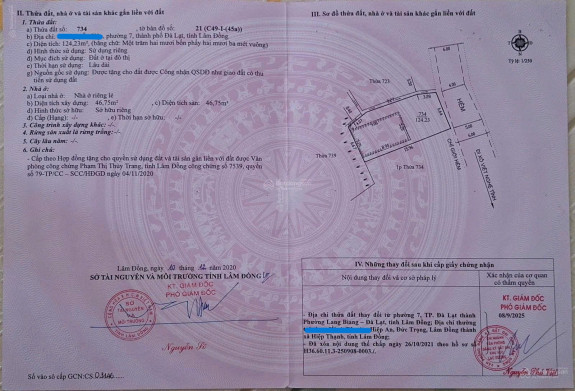 II. Thửa đất, nhà ở và tài sản khác gắn liền với đất
1. Thửa đất:
a) Thửa đất số: 734 , tờ bản đồ số: 21 (C49-I-(45a))
b) Địa chỉ: phường 7, thành phố Đà Lạt, tỉnh Lâm Đồng
c) Diện tích: 124,23m², (bằng chữ: Một trăm hai mươi bốn phẩy hai mươi ba mét vuông)
d) Hình thức sử dụng: Sử dụng riêng
đ) Mục đích sử dụng: Đất ở tại đô thị
e) Thời hạn sử dụng: Lâu dài
g) Nguồn gốc sử dụng: Được tặng cho đất được Công nhận QSDĐ như giao đất có thu
tiền sử dụng đất
2. Nhà ở:
a) Loại nhà ở: Nhà ở riêng lẻ
b) Diện tích xây dựng: 46,75m² , c) Diện tích sàn: 46,75m²
d) Hình thức sở hữu: Sở hữu riêng
đ) Cấp (Hạng): -/- , e) Thời hạn sở hữu: -/-
3. Công trình xây dựng khác: -/-
4. Rừng sản xuất là rừng trồng: -/-
5. Cây lâu năm: -/-
6. Ghi chú:
- Cấp theo Hợp đồng tặng cho quyền sử dụng đất và tài sản gắn liền với đất được Văn
phòng công chứng Phạm Thị Thùy Trang, tỉnh Lâm Đồng công chứng số 7539, quyển
số 79-TP/CC – SCC/HĐGD ngày 04/11/2020
Lâm Đồng, ngày tháng 12 năm 2020
SỞ TÀI NGUYÊN VÀ MÔI TRƯỜNG TỈNH LÂM ĐỒNG
KT. GIÁM ĐỐC
PHÓ GIÁM ĐỐC
SỞ
TÀI NGUYÊN
VÀ
MÔI TRƯỜNG
Số vào sổ cấp GCN: CS
III. Sơ đồ thửa đất, nhà ở và tài sản khác gắn liền với đất
Thửa 723
734
124,23
HẺM
Thửa 739
1p Thửa 734
CHỈ GIỚI HẺM
ĐI XÔ VIẾT NGHỆ TĨNH
IV. Những thay đổi sau khi cấp giấy chứng nhận
Nội dung thay đổi và cơ sở pháp lý
Xác nhận của cơ quan
có thẩm quyền
- Địa chỉ thửa đất thay đổi từ phường 7, TP. Đà Lạt thành
Phường Lang Biang – Đà Lạt, tỉnh Lâm Đồng; Địa chỉ thường
Hiệp An, Đức Trọng, Lâm Đồng thành
xã Hiệp Thạnh, tỉnh Lâm Đồng;
- Đã xóa nội dung thế chấp ngày 26/10/2021 theo hồ sơ số
H36.60.11.3-250908-0003./.
08/9/2025
KT. GIÁM ĐỐC
PHÓ GIÁM ĐỐC